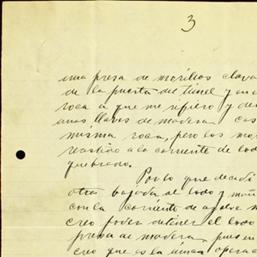 3
una presa de morillos clava
de la puerta del tunel y en
roca a que me refiero y de
unas llaves de madera
misma roca, pero los mo
a la corriente de lodo
quebrado.
Por lo que decidí
otra bajada del lodo y
con la corriente de
creo poder detener el lodo
presa de madera, pues
creo que es la única opera